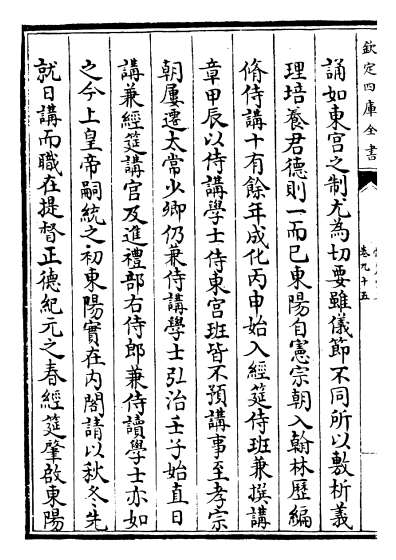 欽定四庫全書
卷九十五
誦如東宮之制尤為切要雖儀節不同所以敷析義
理培養君德則一而已東陽自憲宗朝入翰林歷編
脩侍講十有餘年成化丙申始入經筵侍班兼撰講
章甲辰以侍講學士侍東宮班皆不預講事至孝宗
朝屢遷太常少卿仍兼侍講學士弘治壬子始直日
講兼經筵講官及進禮部右侍郎兼侍讀學士亦如
之今上皇帝嗣統之初東陽實在内閣請以秋冬先
就日講而職在提督正德紀元之春經筵肇啟東陽